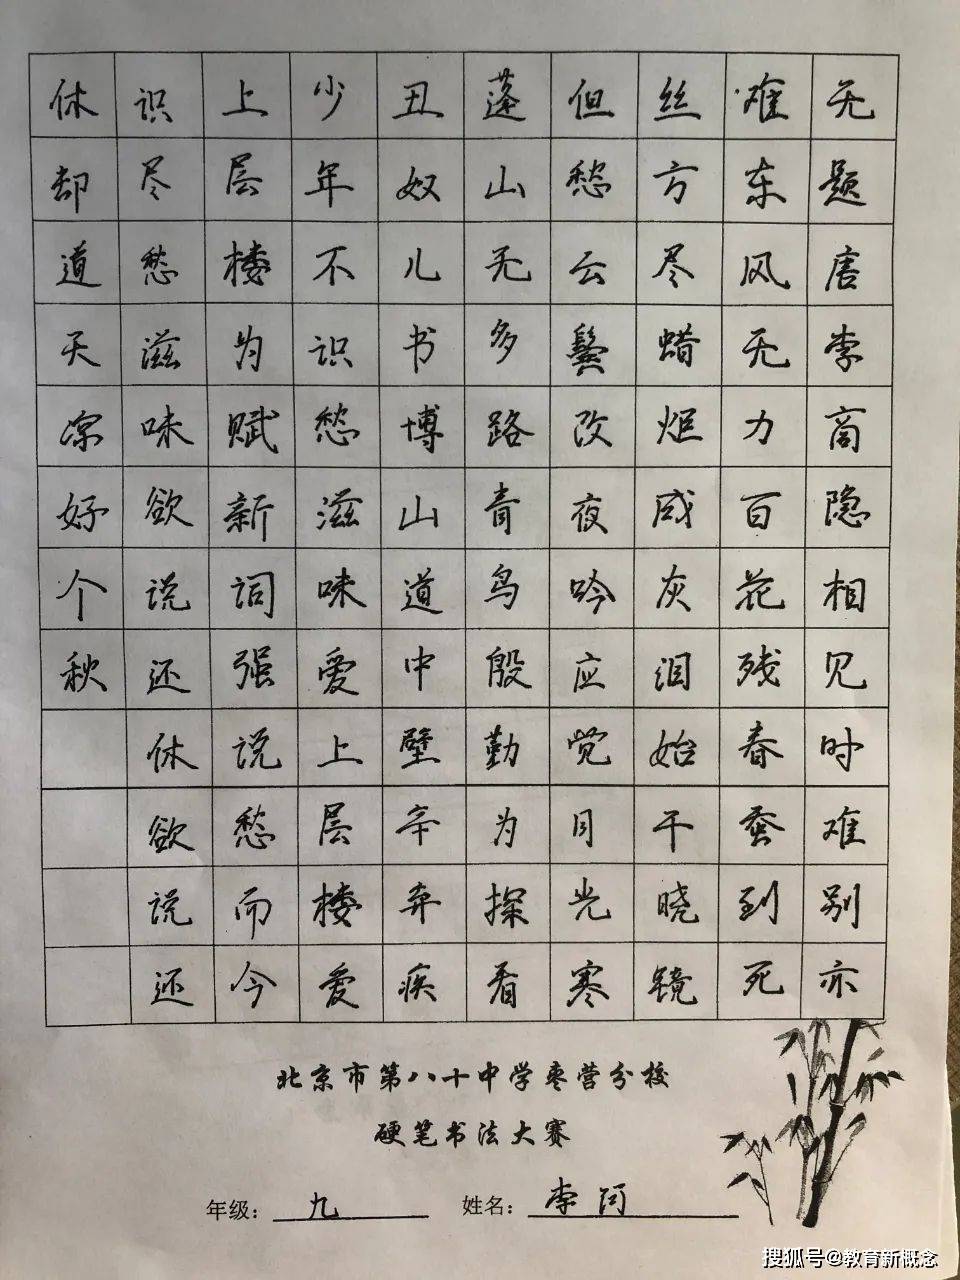 无题唐李商隐相见时难别亦
难东风无力百花残春蚕到死
丝方尽蜡炬成灰泪始干晓镜
但愁云鬓改夜吟应觉月光寒
蓬山无多路青鸟殷勤为探看
丑奴儿书博山道中壁辛弃疾
少年不识愁滋味爱上层楼爱
上层楼为赋新词强说愁而今
识尽愁滋味欲说还休欲说还
休却道天凉好个秋
北京市第八十中学枣营分校
硬笔书法大赛
年级：九 姓名：李
搜狐号@教育新概念